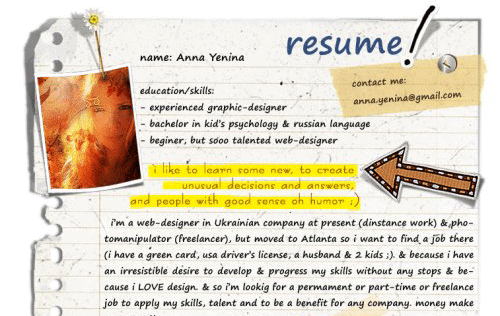 resume!
name: Anna Yenina
education/skills:
- experienced graphic-designer
- bachelor in kid's psychology & russian language
- beginer, but sooo talented web-designer
contact me:
anna.yenina@gmail.com
i like to learn some new, to create
unusual decisions and answers,
and people with good sense oh humor ;)
i'm a web-designer in Ukrainian company at present (dinstance work) & pho-
tomanipulator (freelancer), but moved to Atlanta so i want to find a job there
(i have a green card, usa driver's license, a husband & 2 kids ;). & because i have
an irresistible desire to develop & progress my skills without any stops & be-
cause i LOVE design. & so i'm lookig for a permament or part-time or freelance
job to apply my skills, talent and to be a benefit for any company. money make